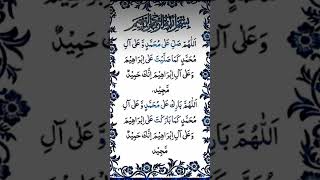 بِسْمِ اللهِ الرَّحْمٰنِ الرَّحِيْمِ
اَللّٰهُمَّ صَلِّ عَلٰى مُحَمَّدٍ وَّ عَلٰى آلِ
مُحَمَّدٍ كَمَا صَلَّيْتَ عَلٰى اِبْرَاهِيْمَ
وَ عَلٰى آلِ اِبْرَاهِيْمَ اِنَّكَ حَمِيْدٌ
مَّجِيْد۔
اَللّٰهُمَّ بَارِكْ عَلٰى مُحَمَّدٍ وَّ عَلٰى آلِ
مُحَمَّدٍ كَمَا بَارَكْتَ عَلٰى اِبْرَاهِيْمَ
وَ عَلٰى آلِ اِبْرَاهِيْمَ اِنَّكَ حَمِيْدٌ
مَّجِيْد